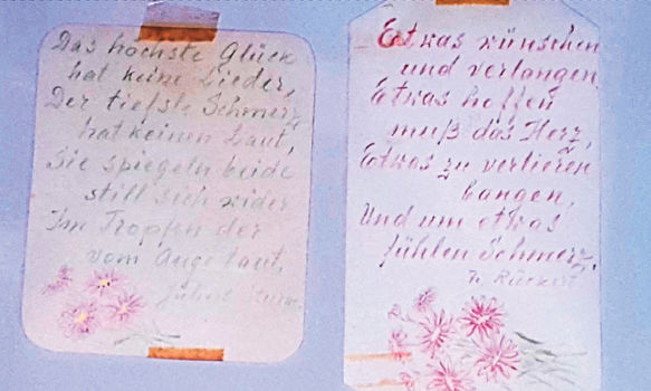 Das höchste Glück
hat keine Lieder,
Der tiefste Schmerz
hat keinen Laut,
Sie spiegeln beide
still sich wider
Im Tropfen der
vom Auge taut.
Julius Sturm.
Etwas wünschen
und verlangen
Etwas hoffen
muß das Herz,
Etwas zu verlieren
bangen,
Und um etwas
fühlen Schmerz.
Rückert